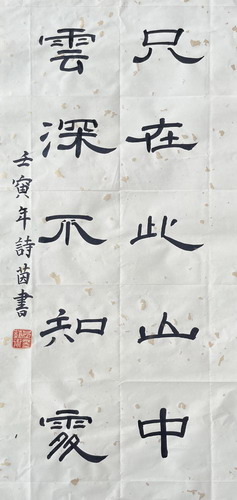 只在此山中
雲深不知處
壬寅年詩茵書